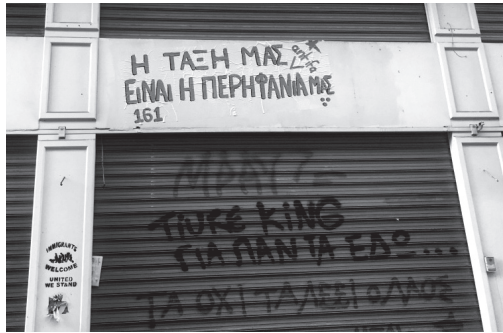 Η ΤΑΞΗ ΜΑΣ
antifa
ΕΙΝΑΙ Η ΠΕΡΗΦΑΝΙΑ ΜΑΣ
161
TIUKE KING
ΓΙΑ ΠΑΝΤΑ ΕΔΩ...
ΟΧΙ
Ο ΛΑΟΣ
IMMIGRANTS
WELCOME
UNITED
WE STAND